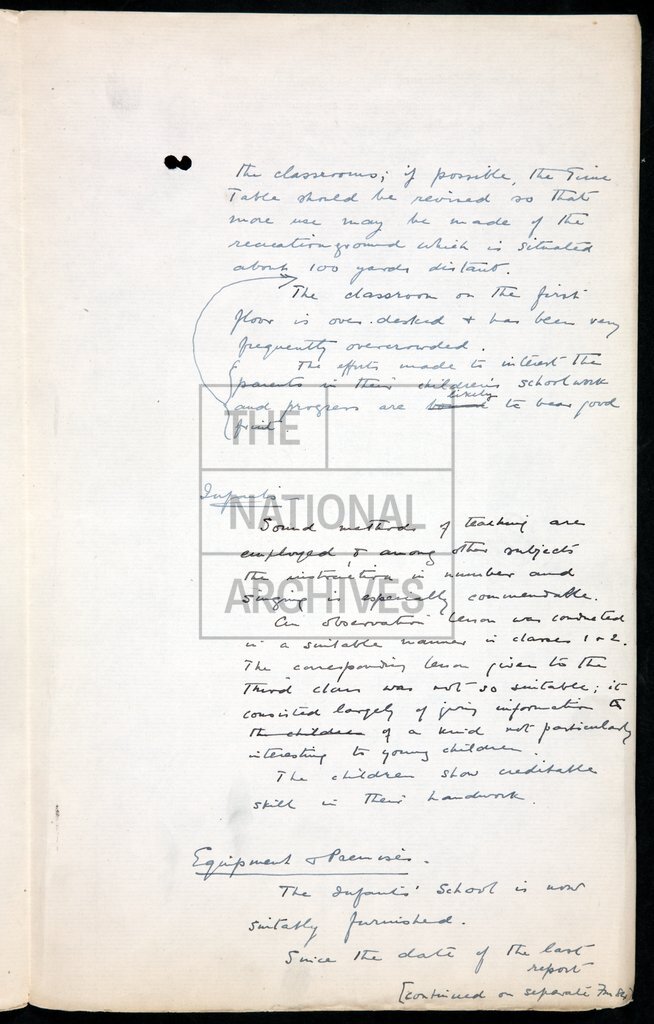 the classrooms; if possible, the Time
Table should be revised so that
more use may be made of the
recreation ground which is situated
about 100 yards distant.
The classroom on the first
floor is over-desked & has been very
frequently overcrowded.
The efforts made to interest the
parents in their children's school work
likely
and progress are bound to bear good
fruit.
THE
NATIONAL
ARCHIVES
Infants
Sound methods of teaching are
employed, & among other subjects
the instruction in number and
singing is especially commendable.
An observation lesson was conducted
in a suitable manner in classes 1 & 2.
The corresponding lesson given to the
Third class was not so suitable; it
consisted largely of giving information to
the children of a kind not particularly
interesting to young children.
The children show creditable
skill in their handwork.
Equipment & Premises.
The Infants' School is now
suitably furnished.
Since the date of the last
report
[continued on separate Fm